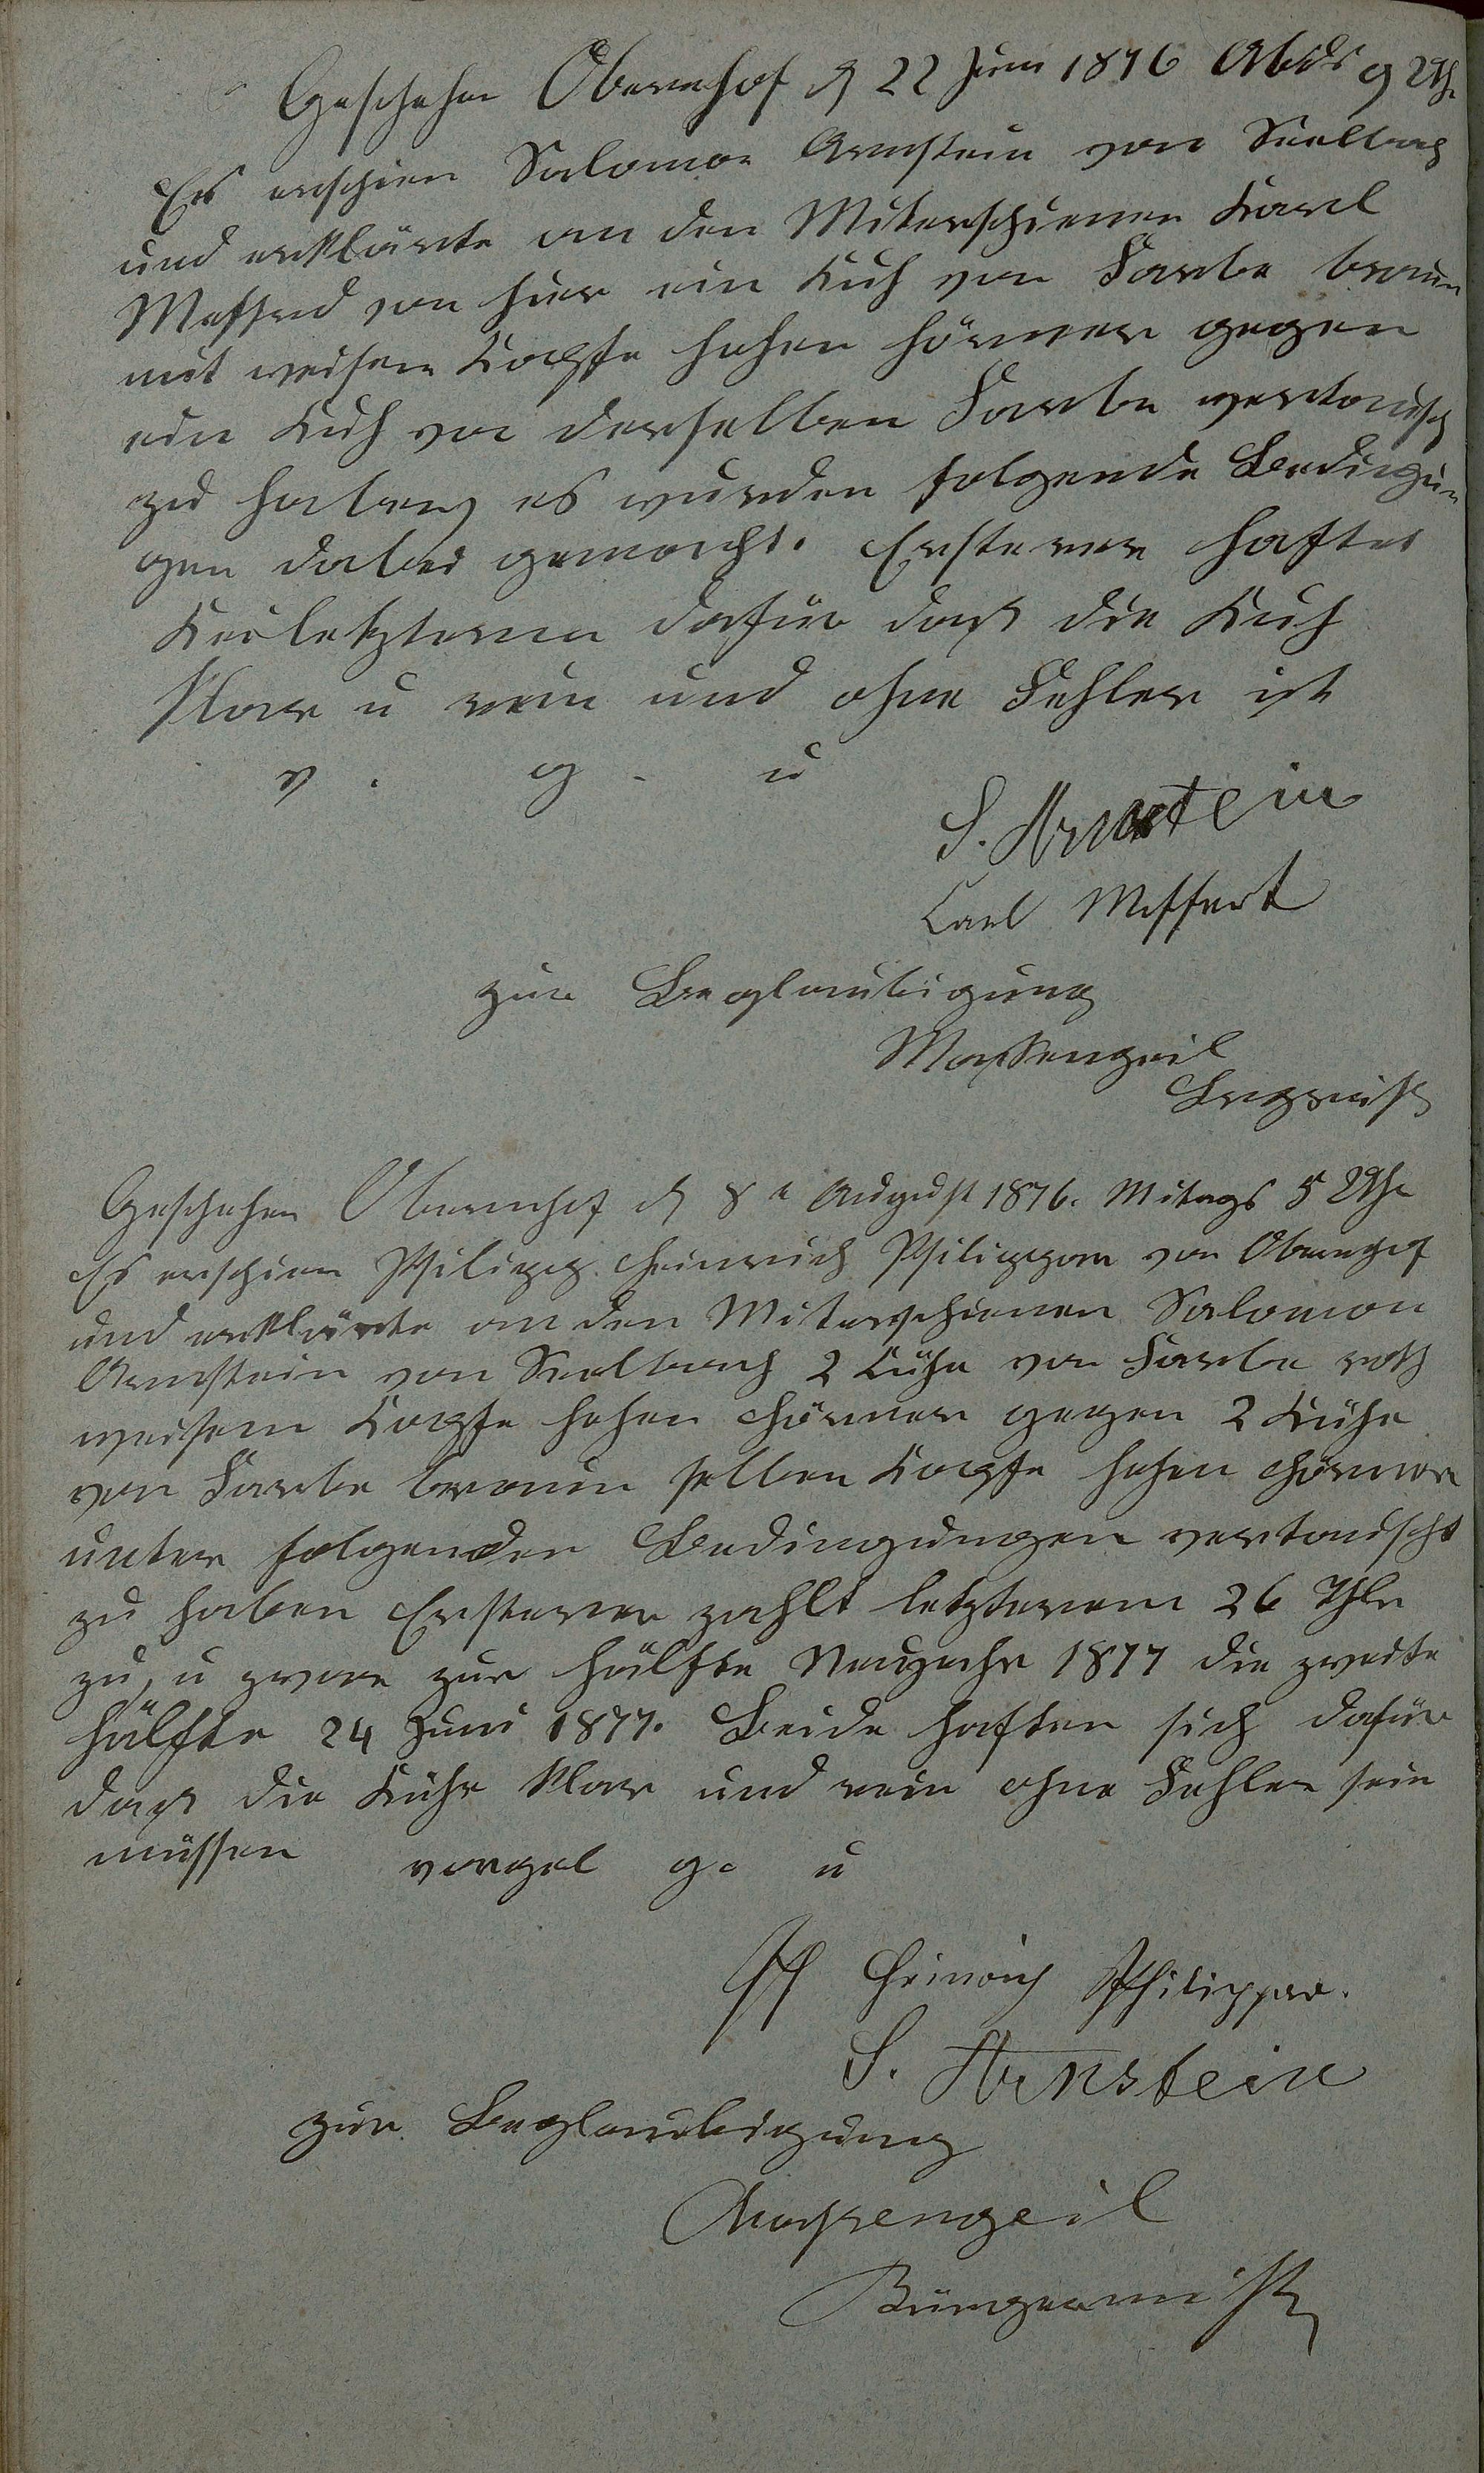 Geschehen Obernhof d 22 Juni 1876 Abds 9 Uh
Es erschien Salomon Arnstein von Seelbach
und erklärte an den Miterschienen Karl
Meffert von hier ein Kuh von Farbe braun
mit weisem Kopfe hohen Hörner gegen
ein Kuh von derselben Farbe vertausch
zu haben es wurden folgende Bedingun
gen dabei gemacht. Ersterer haftet
letzterem dafür daß die Kuh
klar u rein und ohne Fehler ist
v . g - u
S. Arnstein
Carl Meffert
zur Beglaubigung
Massengeil
Brgrmst
Geschehen Obernhof d 8 n August 1876. Mitags 5 Uhr
Es erschien Philipp Heinrich Philippar von Obernhof
und erklärte an den Miterschienen Salomon
Arnstein von Seelbach 2 Kühe von Farbe roth
weisem Kopfe hohen Hörner gegen 2 Kühe
von Farbe braun selben Kopfe hohen Hörner
unter folgenden Bedingungen vertauscht
zu haben Ersterer zahlt letzterem 26 Thlr
zu, u zwar zur Hälfte Neujahr 1877 die zweite
Hälfte 24 Juni 1877. Beide haften sich dafür
daß die Kühe klar und rein ohne Fehler sein
müssen vorgel g. u
Ph Heinrich Philippar.
S. Arnstein
zur Beglaubigung
Massengeil
Bürgermst